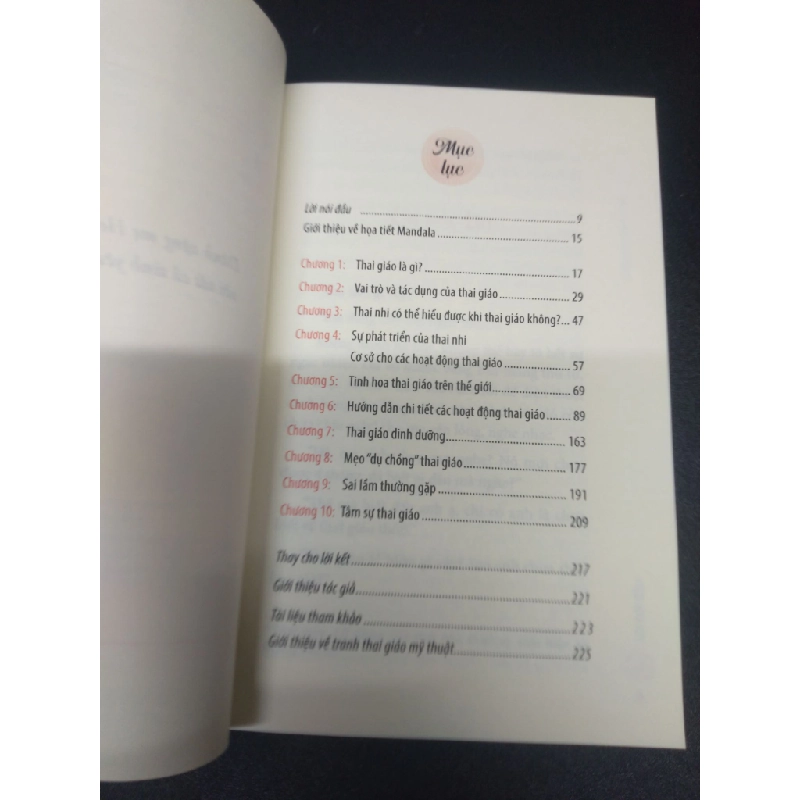 Mục
lục
Lời nói đầu ........ 9
Giới thiệu về họa tiết Mandala ........ 15
Chương 1: Thai giáo là gì? ........ 17
Chương 2: Vai trò và tác dụng của thai giáo ........ 29
Chương 3: Thai nhi có thể hiểu được khi thai giáo không?... 47
Chương 4: Sự phát triển của thai nhi
Cơ sở cho các hoạt động thai giáo ........ 57
Chương 5: Tinh hoa thai giáo trên thế giới ........ 69
Chương 6: Hướng dẫn chi tiết các hoạt động thai giáo ........ 89
Chương 7: Thai giáo dinh dưỡng ........ 163
Chương 8: Mẹo "dụ chồng" thai giáo ........ 177
Chương 9: Sai lầm thường gặp ........ 191
Chương 10: Tâm sự thai giáo ........ 209
Thay cho lời kết ........ 217
Giới thiệu tác giả ........ 221
Tài liệu tham khảo ........ 223
Giới thiệu về tranh thai giáo mỹ thuật ........ 225